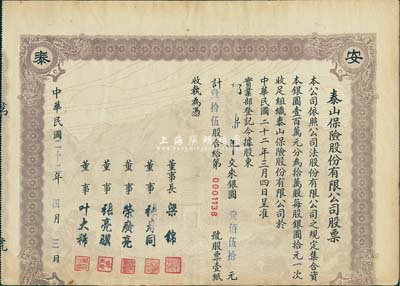 安
泰
泰山保險股份有限公司股票
本公司依照公司法股份有限公司之規定集合資
本銀圓壹百萬元分為拾萬股每股銀圓拾元一次
收足組織泰山保險股份有限公司於
中華民國二十二年三月四日呈准
實業部登記合據股東
交來銀圓 壹佰伍拾 元
計 拾伍股合給第 0001138 號股票壹紙
收執為憑
董事長
董事
董事 榮廣亮
董事 張亮驥
董事 叶大
中華民國二十二年 四月 三日